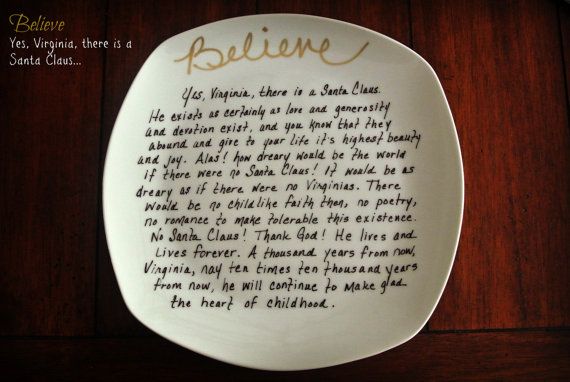 Believe
Yes, Virginia, there is a
Santa Claus...
Believe
Yes, Virginia, there is a Santa Claus.
He exists as certainly as love and generosity
and devotion exist, and you know that they
abound and give to your life it's highest beauty
and joy. Alas! how dreary would be the world
if there were no Santa Claus! It would be as
dreary as if there were no Virginias. There
would be no childlike faith then, no poetry,
no romance to make tolerable this existence.
No Santa Claus! Thank God! He lives and
Lives forever. A thousand years from now,
Virginia, nay ten times ten thousand years
from now, he will continue to make glad
the heart of childhood.